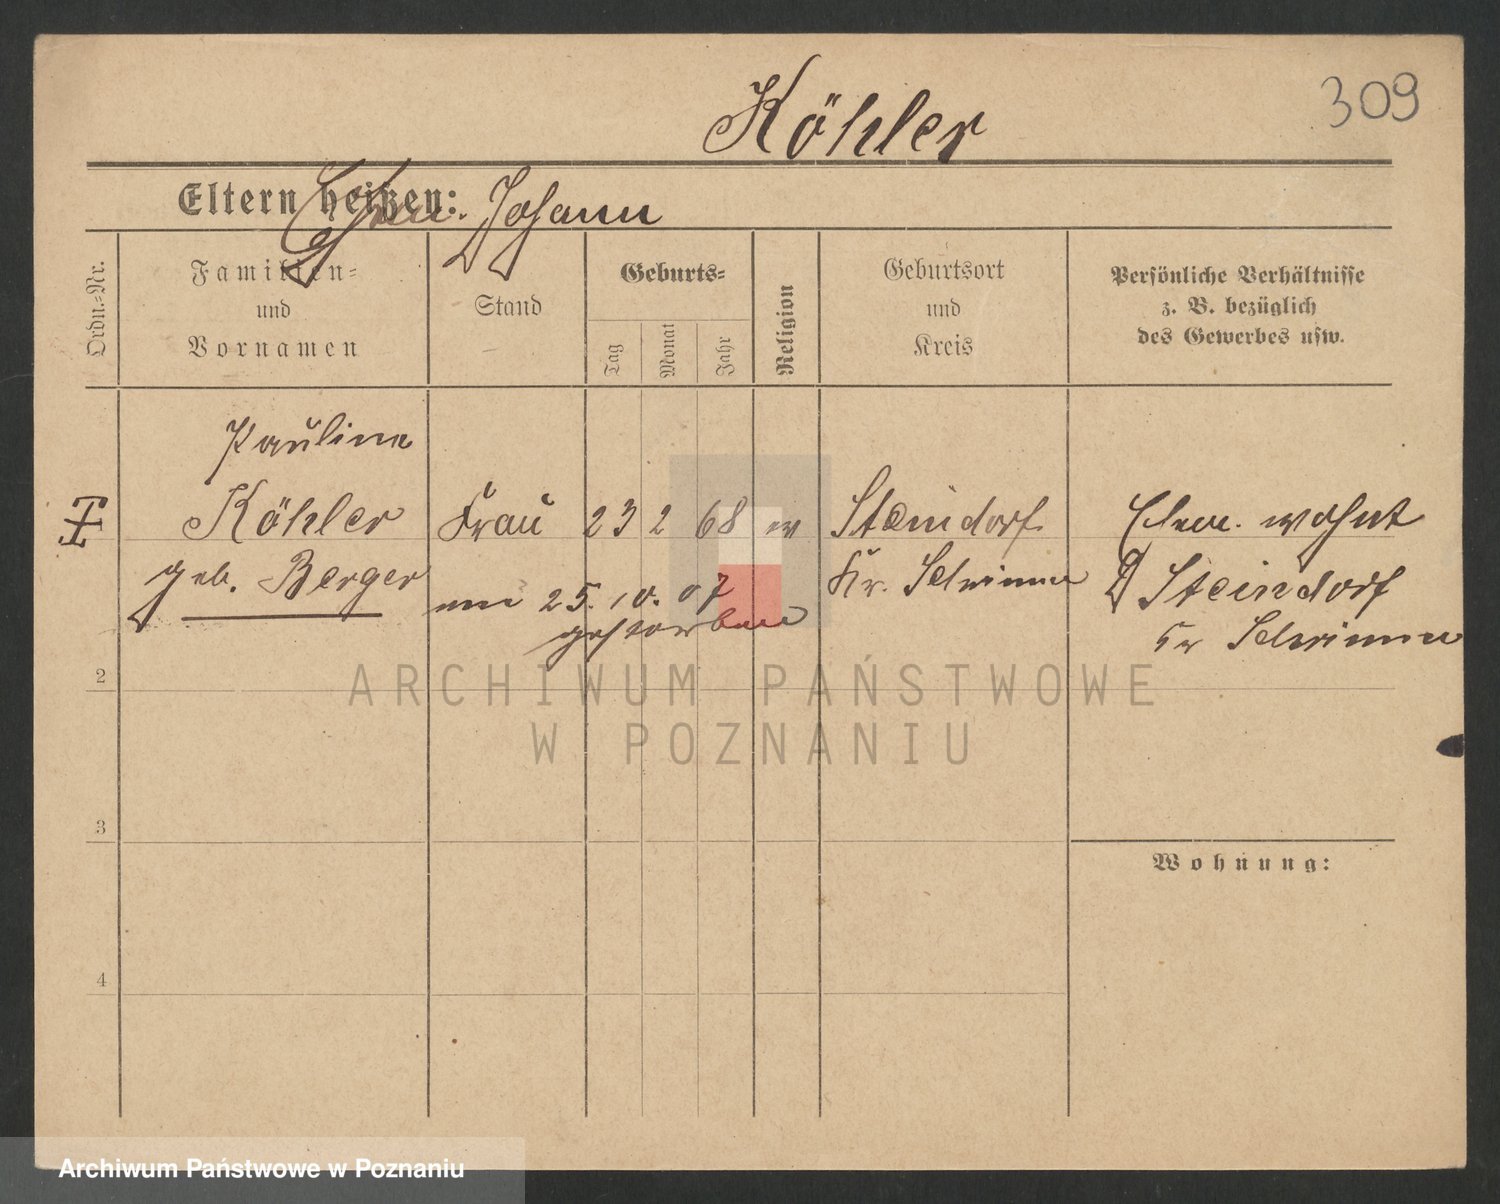 Köhler
309
Eltern heißen: Ehem. Johann
Ordn.-Nr.
Familien-
und
Vornamen
Stand
Geburts-
Tag
Monat
Jahr
Religion
Geburtsort
und
Kreis
Persönliche Verhältnisse
z. B. bezüglich
des Gewerbes usw.
Pauline
Köhler
geb. Berger
Frau
23 2 68 ev
am 25. 10. 07
gestorben
Steindorf
Kr. Schrimm
Ehem. wohnt
Steindorf
Kr Schrimm
2
3
4
Wohnung:
ARCHIWUM PAŃSTWOWE
W POZNANIU
Archiwum Państwowe w Poznaniu